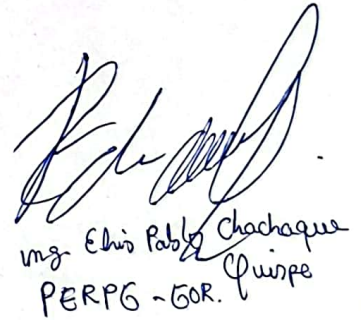 Ing. Elvis Pablo Chachaque
Quispe
PERPG - GOR.